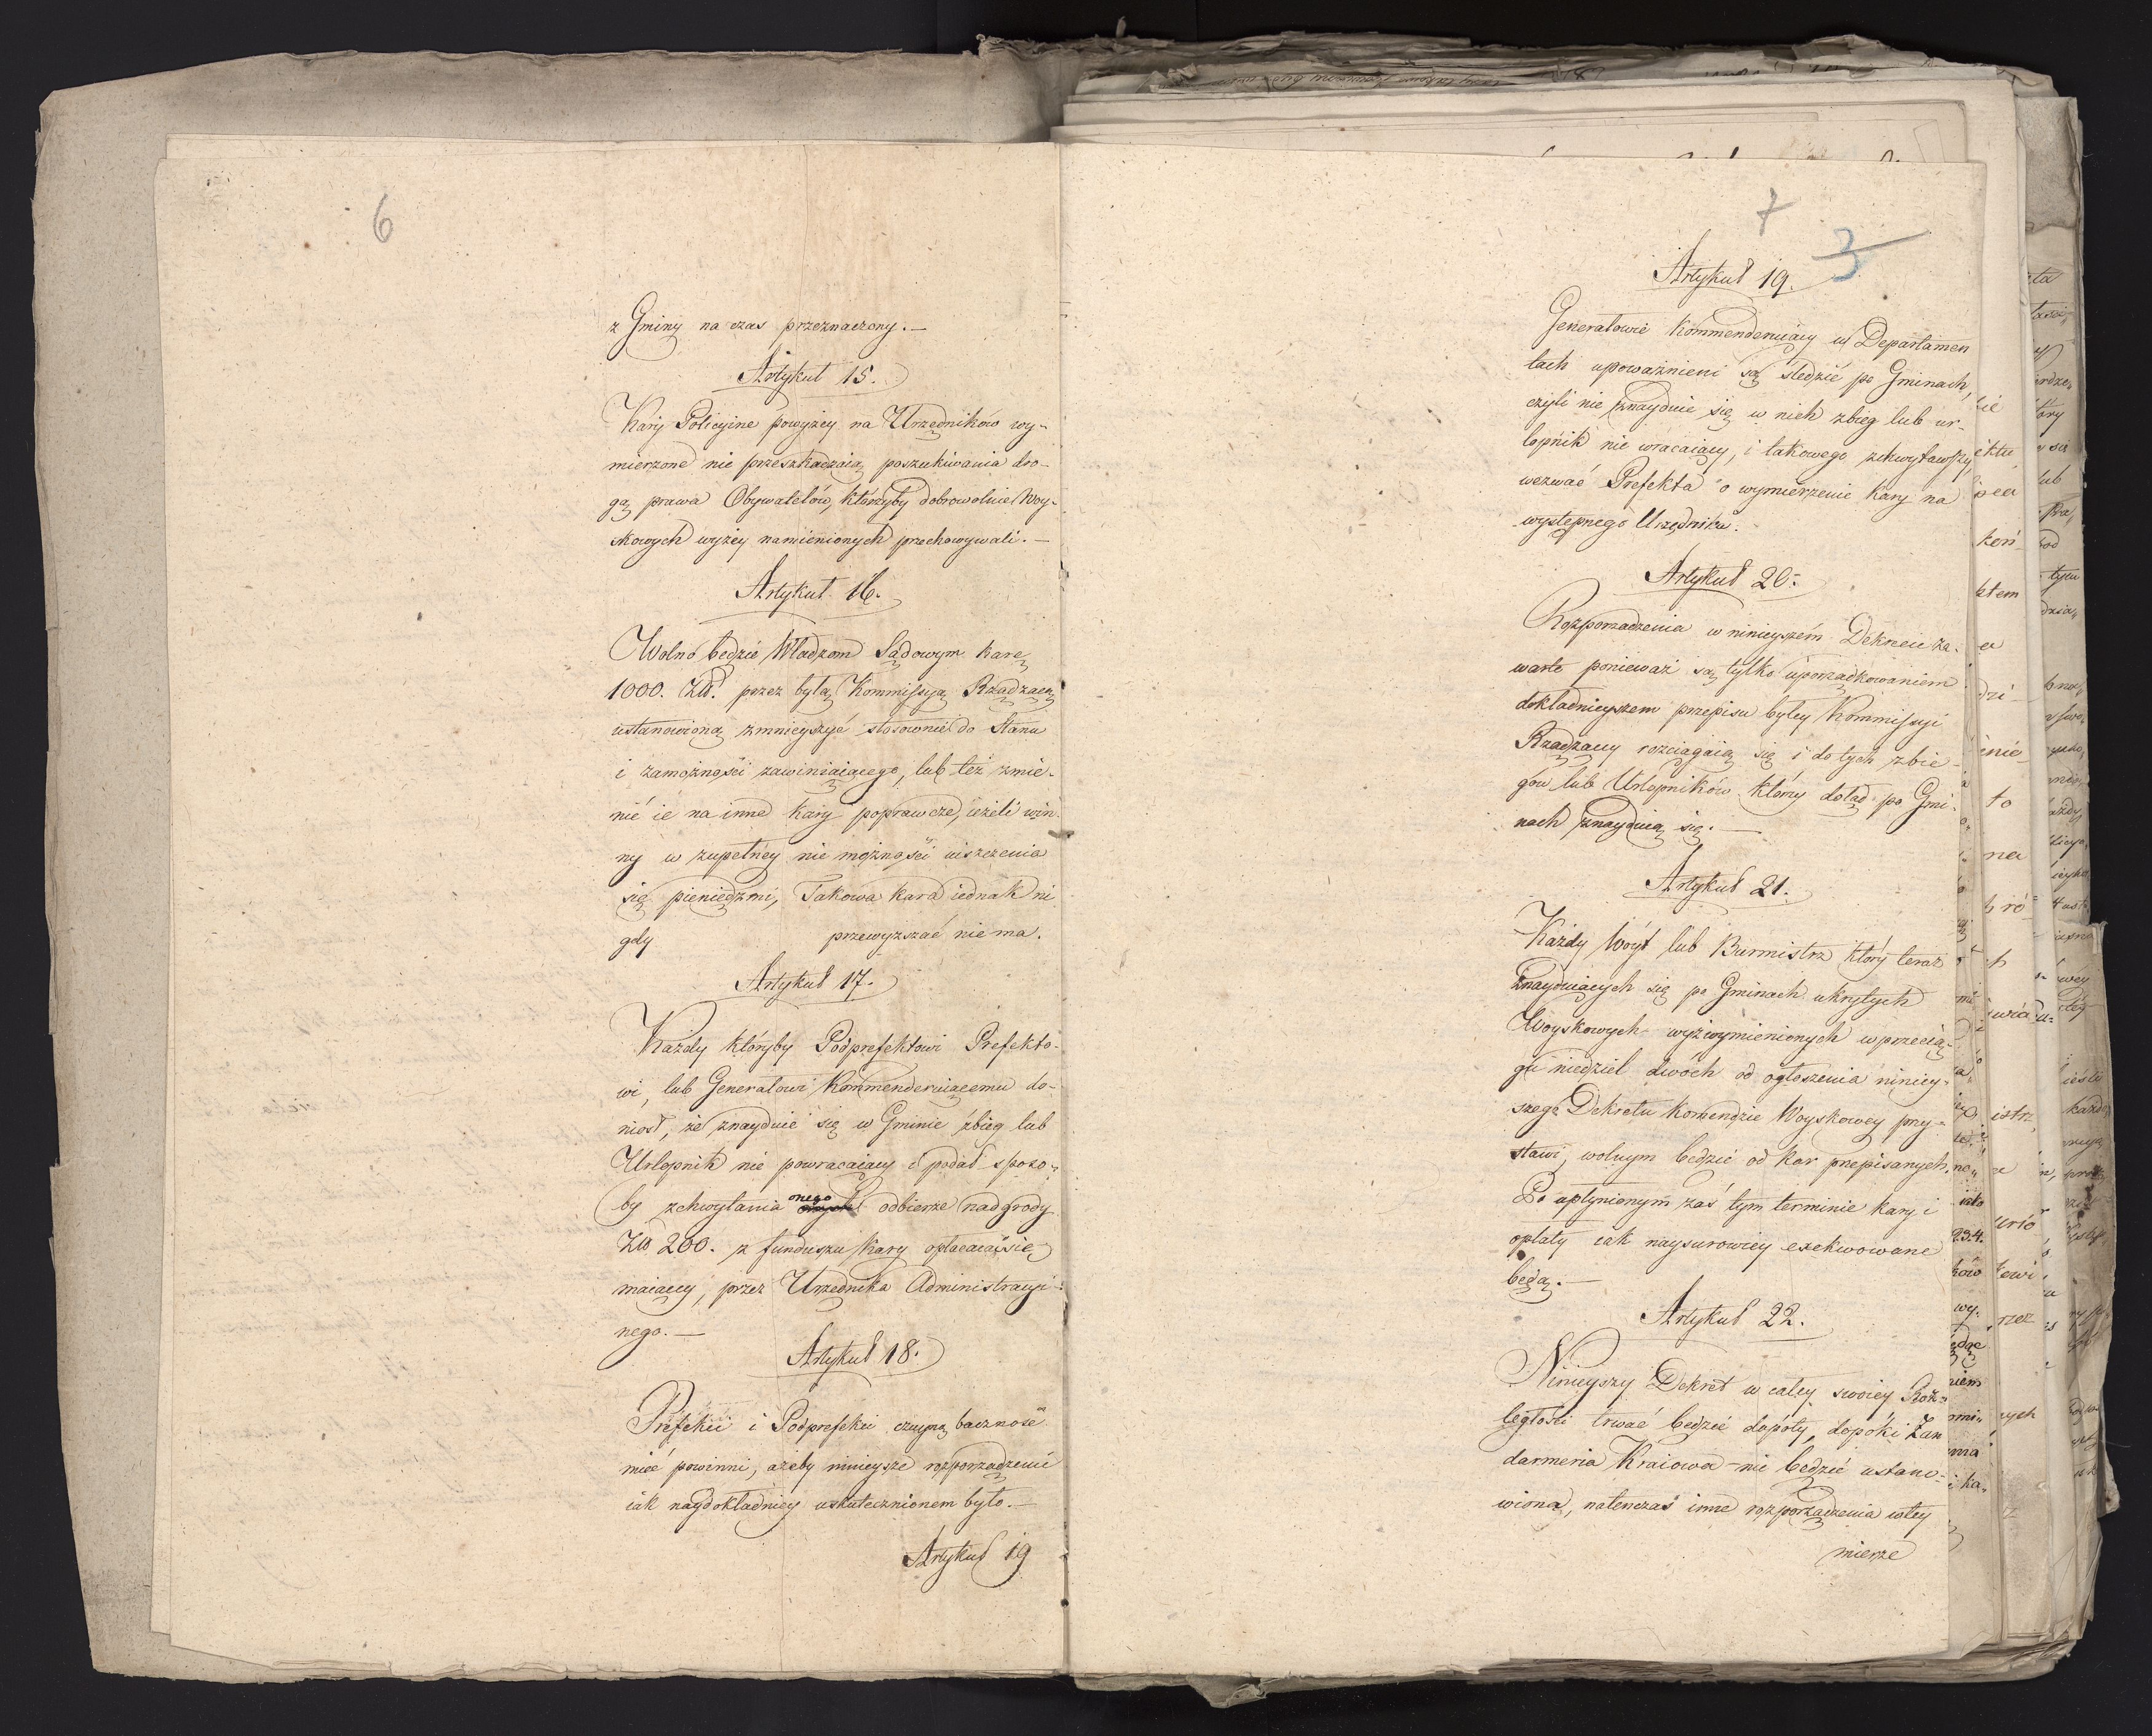 6
z Gminy na czas przeznaczony. —
Artykuł 15.
Kary Policyine powyżey na Urzędników wy-
mierzone nie przeszkadzaią poszukiwania dro-
gą prawa Obywatelów, którzyby dobrowolnie Woy-
skowych wyżey namienionych przechowywali. —
Artykuł 16.
Wolno będzie Władzom Sądowym karę
1000. Złł. przez byłą Kommissyą Rządzącą
ustanowioną zmnieyszyć stosownie do Stanu
i zamożności zawiniaiącego, lub też zmie-
nić ie na inne kary poprawcze, ieżeli win-
ny w zupełney nie możności uiszczenia
się pieniędzmi, Takowa kara iednak ni
gdy przewyższać nie ma.
Artykuł 17.
Każdy któryby Podprefektowi Prefekto-
wi, lub Generałowi Kommenderuiącemu do-
niosł, że znayduie się w Gminie zbieg lub
Urlopnik nie powracaiący i podał sposo-
by zchwytania onego odbierze nadgrody
Złł 200. z funduszu kary opłacać się
maiącey, przez Urzędnika Administracyi-
nego. —
Artykuł 18.
Prefekci i Podprefekci czuyną baczność
mieć powinni, ażeby ninieysze rozporządzenie
iak naydokładniey uskutecznionem było. —
Artykuł 19
7
3
Artykuł 19.
Generałowie Kommenderuiący w Departamen
tach upoważnieni są śledzić po Gminach,
czyli nie znayduie się w nich zbieg lub ur-
lopnik nie wracaiący, i takowego zchwytawszy,
wezwać Prefekta o wymierzenie kary na
występnego Urzędnika.
Artykuł 20.
Rozporządzenia w ninieyszém Dekrecie za-
warte ponieważ są tylko uporządkowaniem
dokładnieyszem przepisu byłey Kommissyi
Rządzącey rozciągaią się i do tych zbie-
gów lub Urlopników którzy dotąd po Gmi-
nach znayduią się. —
Artykuł 21.
Każdy Wóyt lub Burmistrz który teraz
znayduiących się po Gminach ukrytych
Woyskowych wyżwymienionych w przecią-
gu niedziel dwóch od ogłoszenia niniey-
szego Dekretu Komendzie Woyskowey przy-
stawi, wolnym będzie od kar przepisanych,
Po upłynionym zaś tym terminie kary i
opłaty iak naysurowiey exekwowane
będą. —
Artykuł 22.
Ninieyszy Dekret w całey swoiey Roz-
ległości trwać będzie dopóty, dopóki Żan
darmeria Kraiowa nie będzie ustano-
wiona, natenczas inne rozporządzenia w tey
mierze